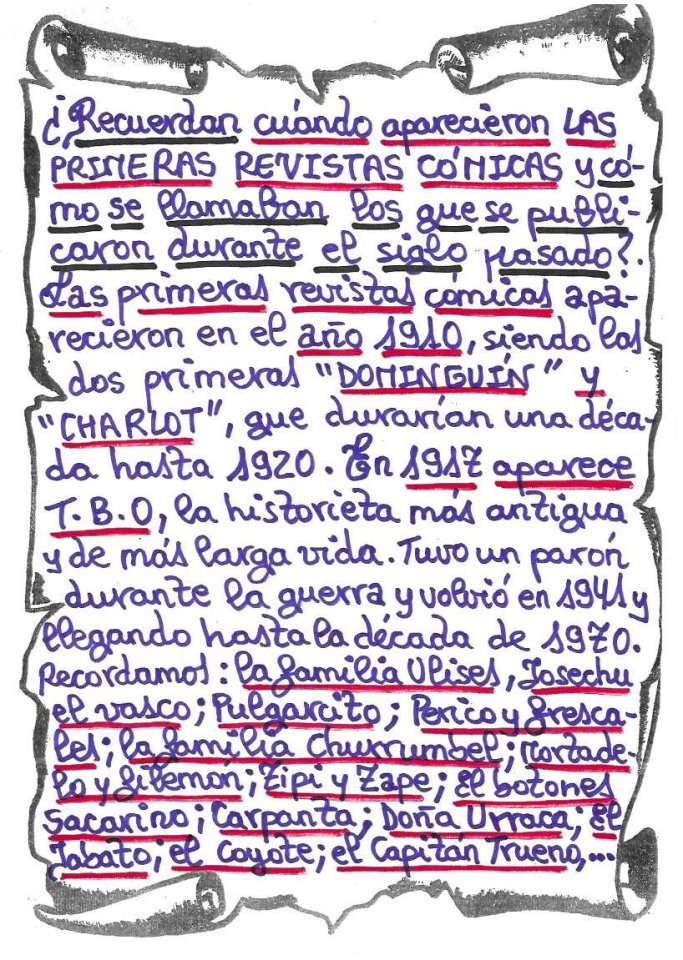 ¿Recuerdan cuándo aparecieron LAS
PRIMERAS REVISTAS CÓMICAS y có-
mo se llamaban los que se publi-
caron durante el siglo pasado?.
Las primeras revistas cómicas apa-
recieron en el año 1910, siendo las
dos primeras "DOMINGUÍN" y
"CHARLOT", que durarían una déca-
da hasta 1920. En 1917 aparece
T.B.O, la historieta más antigua
y de más larga vida. Tuvo un parón
durante la guerra y volvió en 1941 y
llegando hasta la década de 1970.
Recordamos: la familia Ulises, Josechu
el vasco; Pulgarcito; Perico y fresca-
les; la familia Churrumbel; Mortade-
lo y filemón; Zipi y Zape; El botones
Sacarino; Carpanta; Doña Urraca; El
Jabato; el Coyote; el Capitán Trueno,...